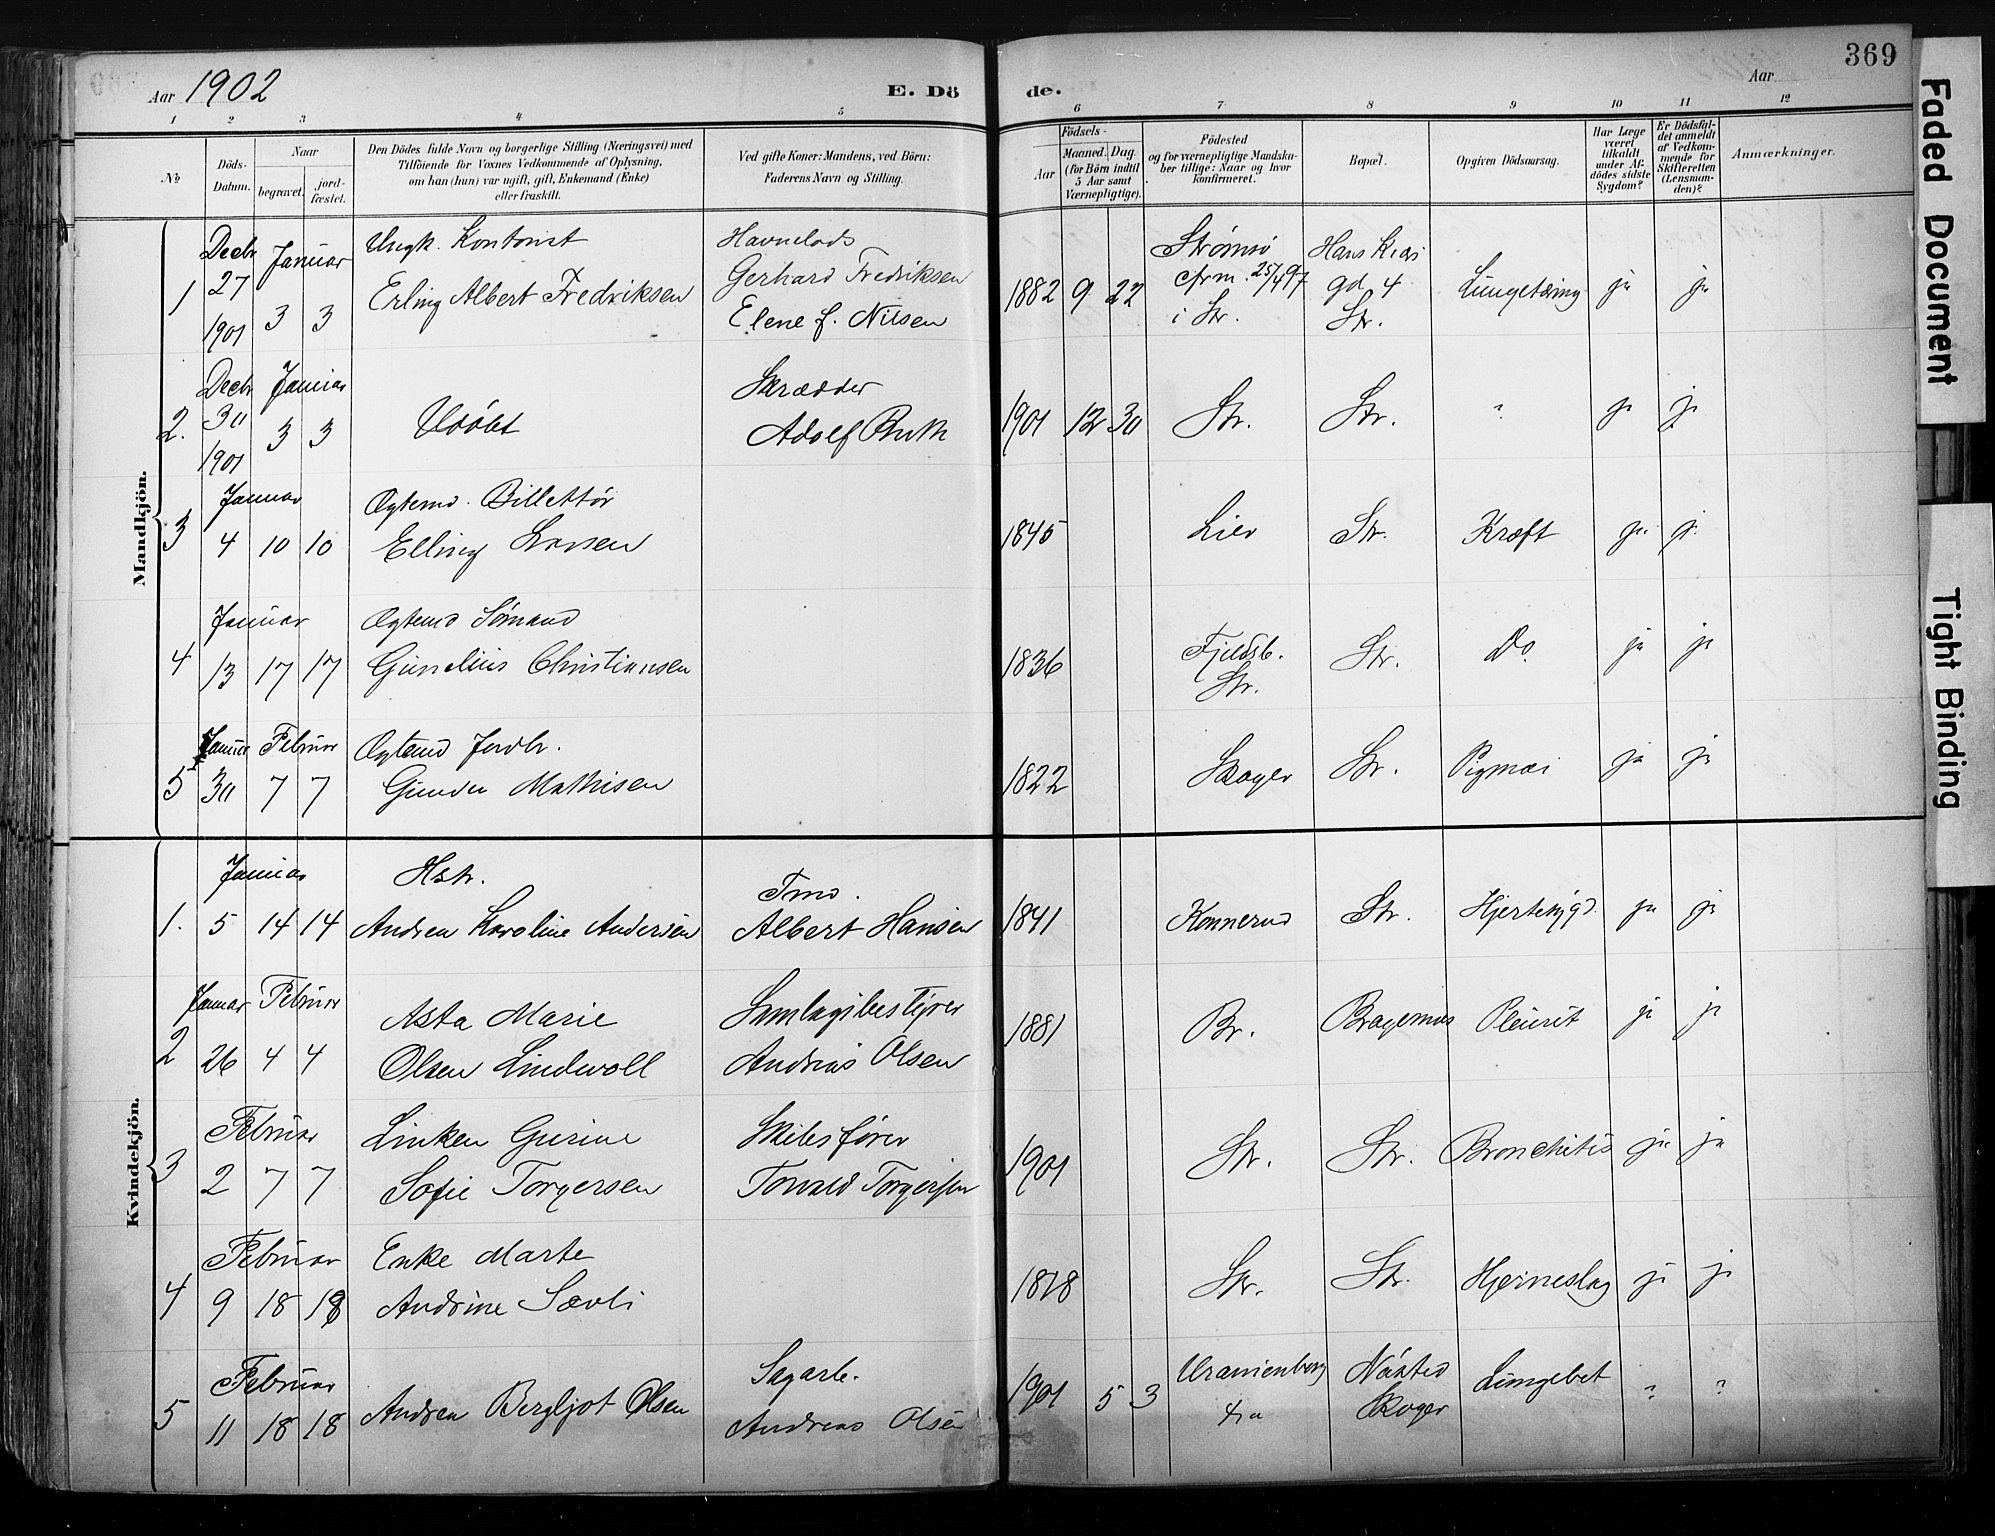 369
Aar 1902
E. Dö
de.
Aar
1 2 3 4 5
6 7 8 9 10 11 12
№
Døds-Datum.
Naar
begravet.
jordfæstet.
Den Dödes fulde Navn og borgerlige Stilling (Næringsvei) med
Tilföiende for Voxnes Vedkommende af Oplysning,
om han (hun) var ugift, gift, Enkemand (Enke)
eller fraskilt.
Ved gifte Koner: Mandens, ved Börn:
Faderens Navn og Stilling.
Födsels-
Aar
Maaned. Dag
(for Børn indtil
5 Aar samt
Værnepligtige).
Födested
og for værnepligtige Mandskaber tillige: Naar og hvor
konfirmeret.
Bopæl.
Opgiven Dödsaarsag.
Har Læge
været
tilkaldt
under Afdödes sidste
Sygdom?
Er Dödsfaldet anmeldt
af Vedkommende for
Skifteretten
(Lensmanden)?
Anmærkninger.
Mandkjön.
Decbr Januar Ungk. Kontorist Havnelods Strømsø Hans Kiær
1 27 Erling Albert Fredriksen Gerhard Fredriksen 1882 9 22 Cfrm. 25/4 97 gd. 4 Lungetæring ja ja
1901 3 3 Elene f. Nilsen i Str. Str.
Decbr Januar Skrædder
2. 30 3 3 Udöbt Adolf Ruth 1901 12 30 Str. Str. ? ja ja
1901
Januar Ægtemd. Billettør
3 4 10 10 Elling Larsen 1845 Lier Str. Kræft ja ja
Januar Ægtemd Sømand
4 13 17 17 Gunelius Christiansen 1836 Fjeldsb. Str. Str. Do. ja ja
Januar Februar Ægtemd Jordbr.
5 30 7 7 Gunder Mathisen 1822 Skoger Str. ja ja
Kvindekjön.
Januar Hstr. Tmd.
1. 5 14 14 Andrea Karoline Andersen Albert Hansen 1841 Konnerud Str. Hjertesygd. ja ja
Januar Februar Asta Marie Samlagsbestyrer
2 26 4 4 Olsen Lindwoll Andreas Olsen 1881 Br. Bragernæs Pleurit ja ja
Februar Linken Gurine Skibsfører
3 2 7 7 Sofie Torgersen Torvald Torgersen 1901 Str. Str. Bronchitis ja ja
Februar Enke Marte
4 9 18 18 Andrine Sævli 1818 Str. Str. Hjerneslag ja ja
Februar Sagarb.
5 11 18 18 Andrea Bergljot Olsen Andreas Olsen 1901 5 3 Uranienborg Kra Nøsted Skoger Lungebet ? ?
Faded Document
Tight Binding